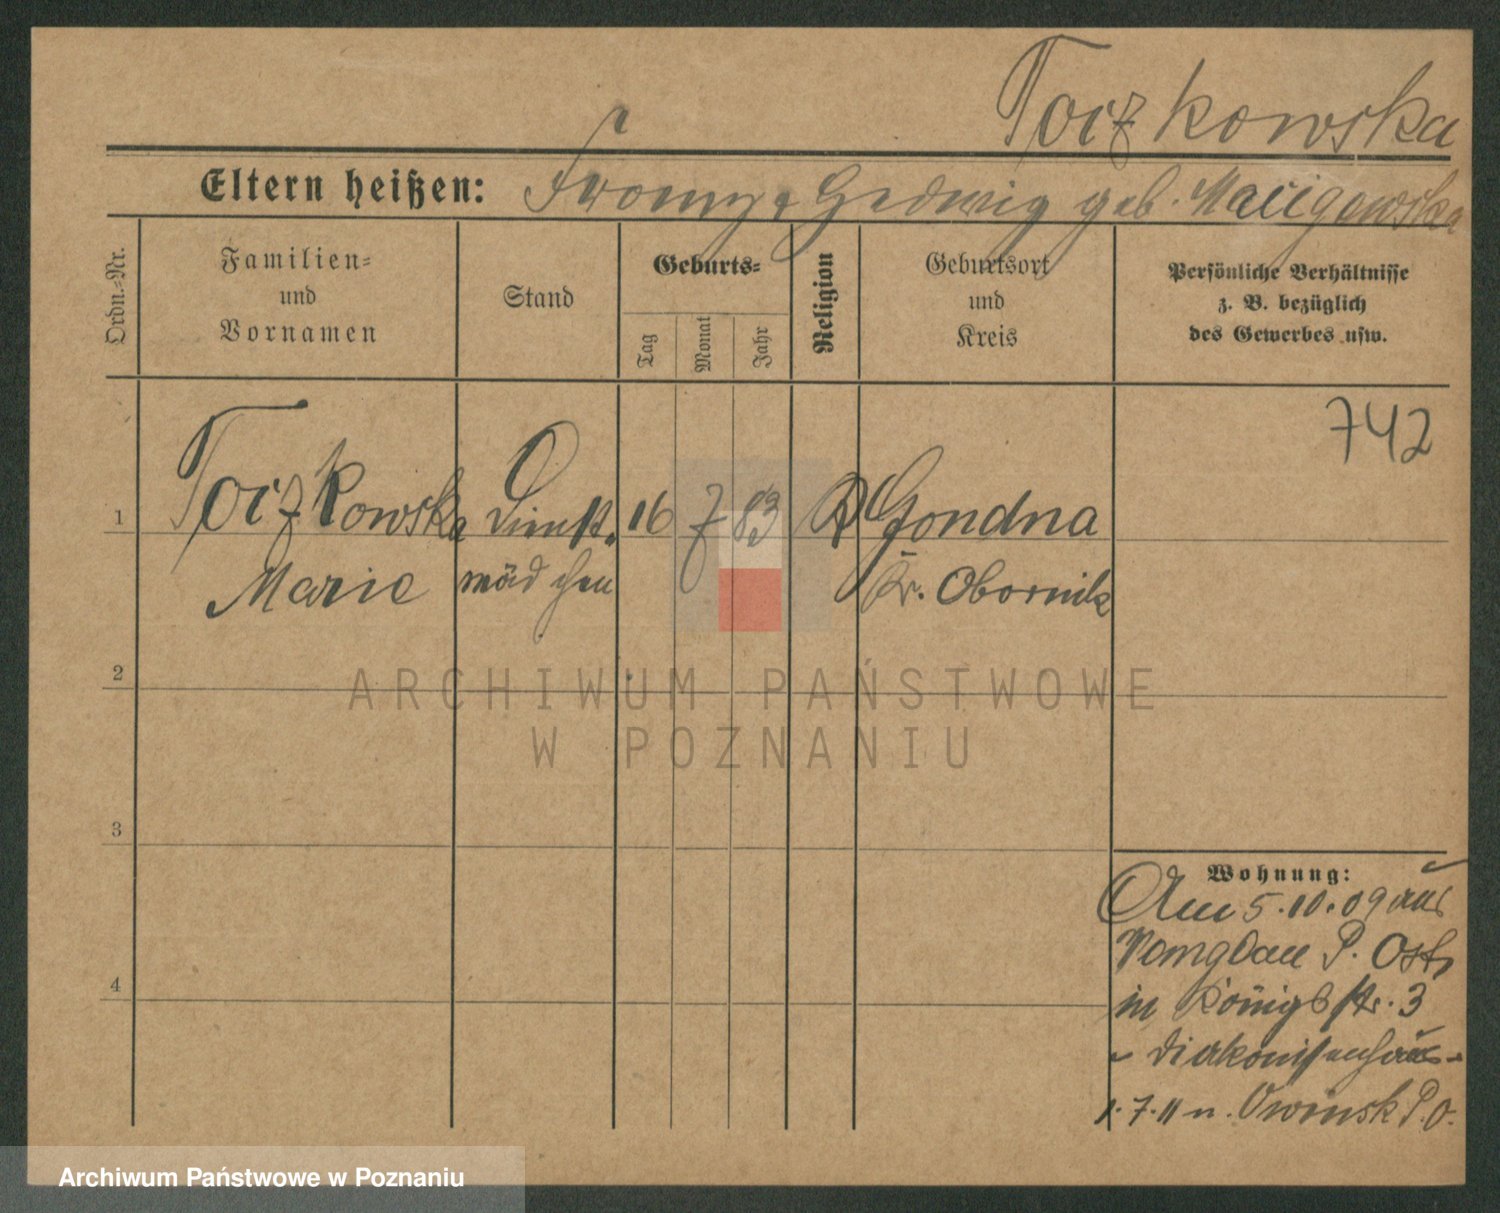 Toizkowska
Eltern heißen: Franz, Hedwig geb. Maciigowska
Ordn.-Nr.
Familien-
und
Vornamen
Stand
Geburts-
Tag
Monat
Jahr
Religion
Geburtsort
und
Kreis
Persönliche Verhältnisse
z. B. bezüglich
des Gewerbes usw.
742
1 Toizkowska Dienst- 16 7 83 Gondna
Marie mädchen Kr. Obornik
2
3
4
Wohnung:
Am 5.10.09 aus
P. Ost,
in Königstr. 3
- Diakonissenhaus -
1.7.11 n. Owinsk P.O.
ARCHIWUM PAŃSTWOWE
W POZNANIU
Archiwum Państwowe w Poznaniu